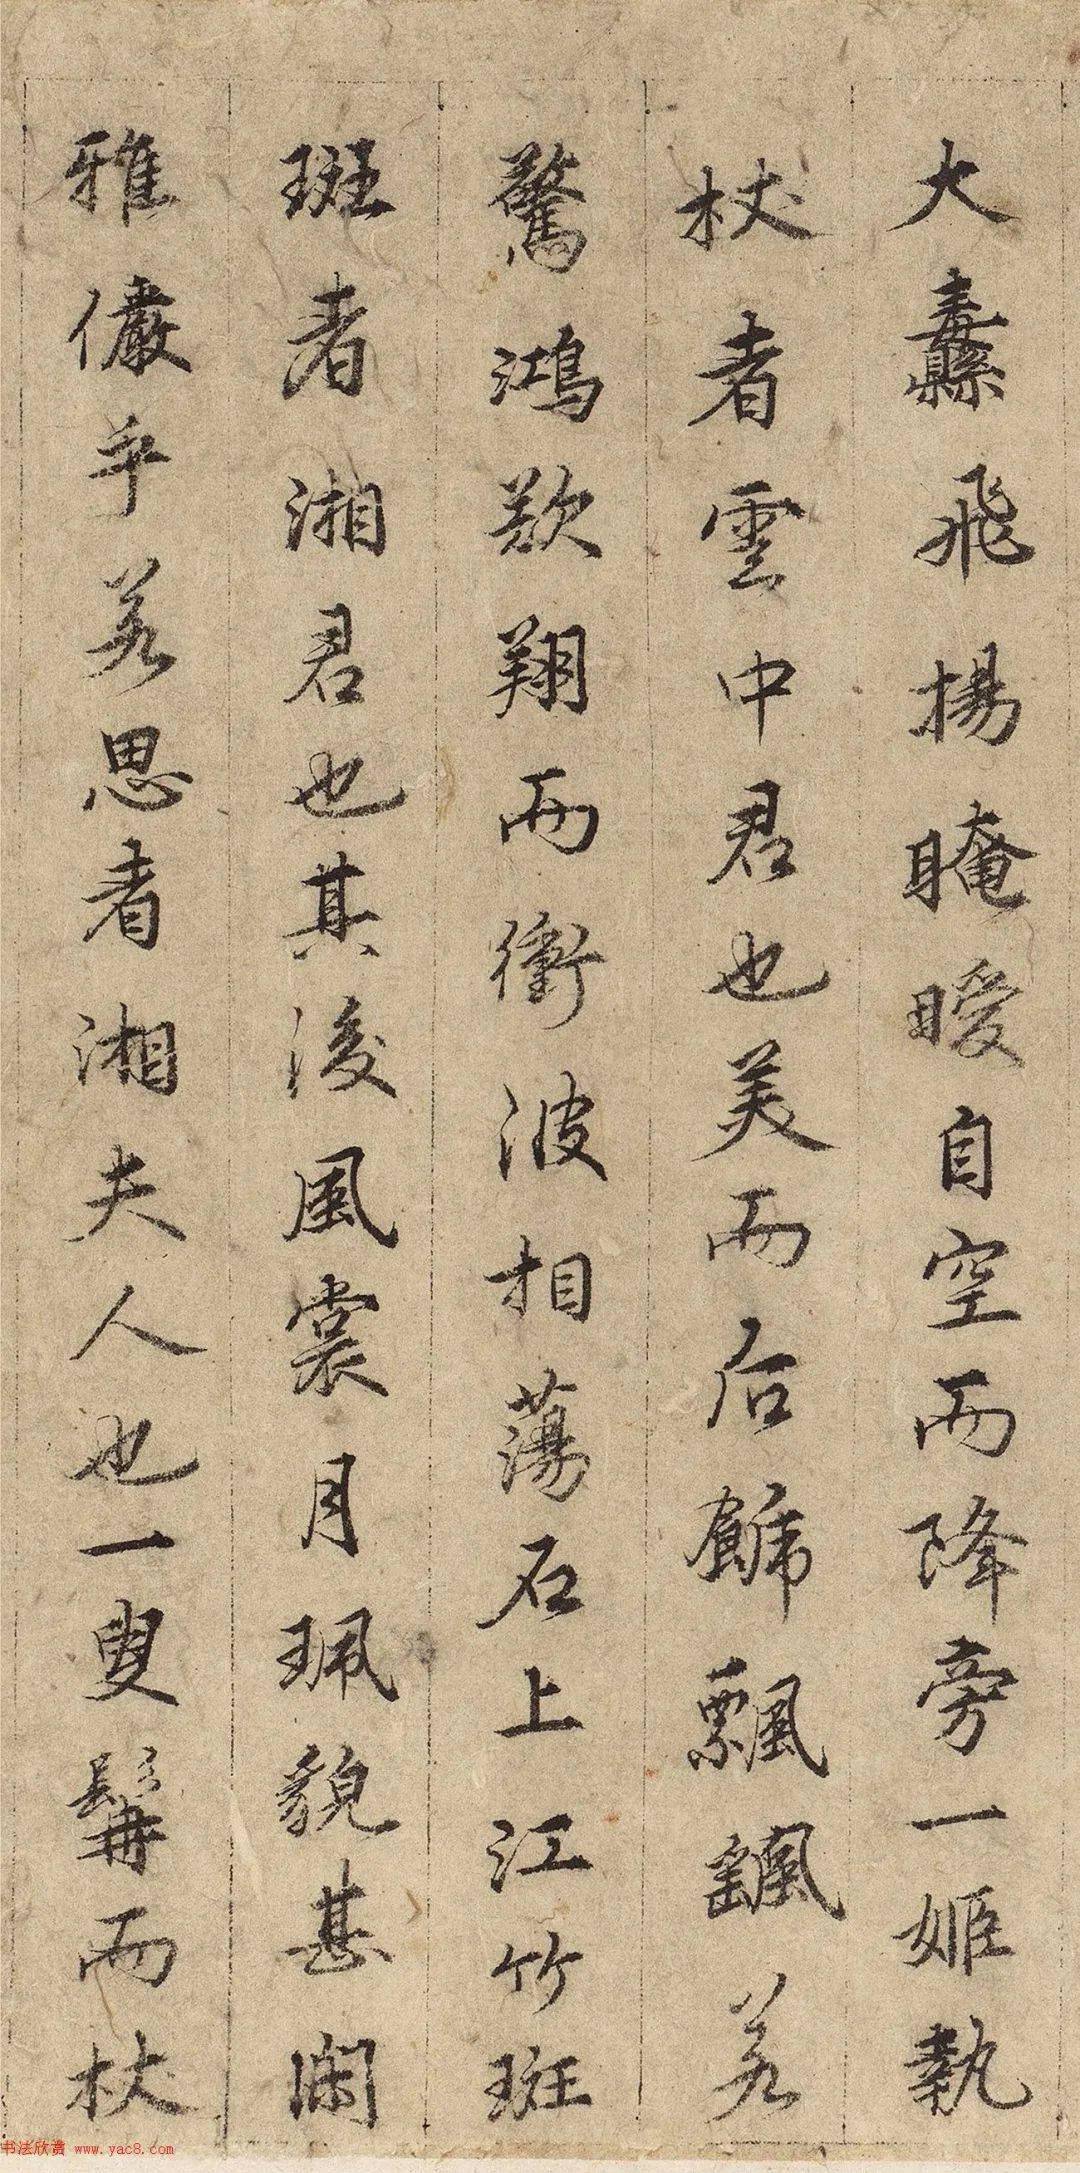 大纛飛揚晻曖自空而降旁一姬執
杖者雲中君也美而后飾飄颻若
驚鴻欲翔而衝波相蕩石上江竹斑
斑者湘君也其後風裳月珮貌甚閑
雅儼乎若思者湘夫人也一叟髯而杖
书法欣赏 www.yac8.com